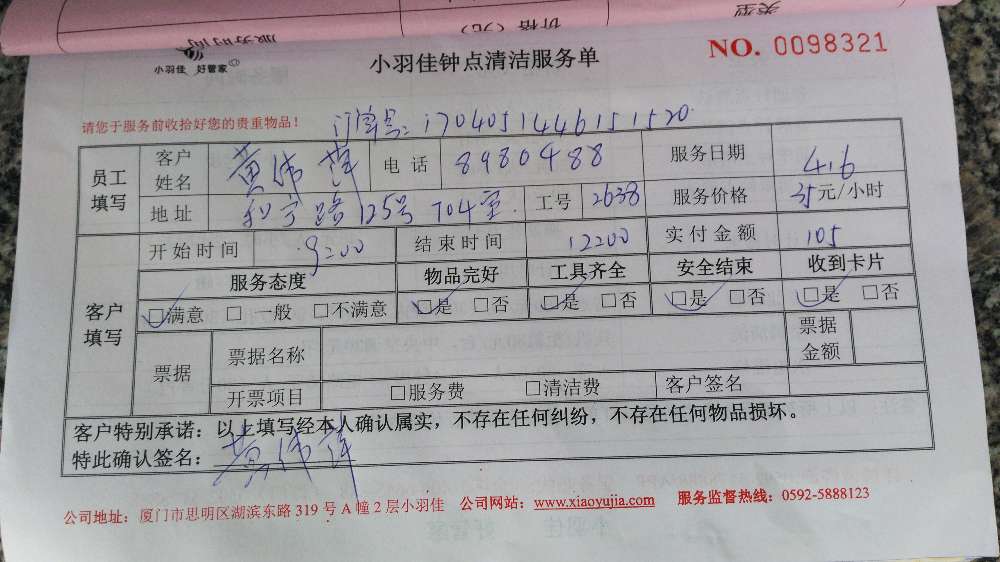 类型
价格（元）
服务时间
小羽佳 好管家
小羽佳钟点清洁服务单
NO. 0098321
请您于服务前收拾好您的贵重物品！
订单号：1704051446151520
员工填写 客户姓名 黄伟萍 电话 8980488 服务日期 4.6
地址 利宁路125号704室. 工号 2638 服务价格 35元/小时
客户填写 开始时间 9:00 结束时间 12:00 实付金额 105
服务态度 物品完好 工具齐全 安全结束 收到卡片
☑满意 □一般 □不满意 ☑是 □否 ☑是 □否 ☑是 □否 ☑是 □否
票据 票据名称 票据金额
开票项目 □服务费 □清洁费 客户签名
客户特别承诺：以上填写经本人确认属实，不存在任何纠纷，不存在任何物品损坏。
特此确认签名：黄伟萍
公司地址：厦门市思明区湖滨东路 319 号 A 幢 2 层小羽佳 公司网站：www.xiaoyujia.com 服务监督热线：0592-5888123